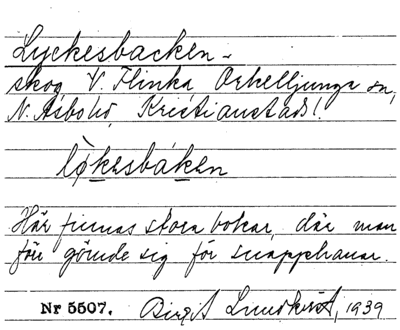 Lyckesbacken -
skog V. Flinka Örkelljunga sn,
N. Åsbo hd, Kristianstads l.
lø̀kesbáken
Här finnas stora bokar, där man
förr gömde sig för snapphanar.
Nr 5507. Birgit Lundkvist, 1939